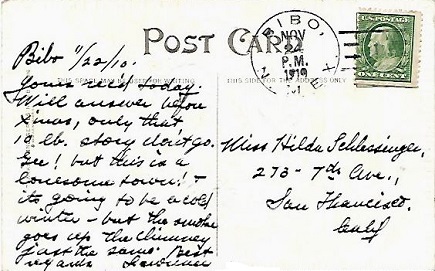 POST CARD
BIBO,
NOV
22
P.M.
1910
N. MEX.
U.S. POSTAGE
ONE CENT
THIS SPACE MAY BE USED FOR WRITING
THIS SIDE FOR THE ADDRESS
Bibo 11/22/10.
Yours rec'd today.
Will answer before
Xmas, only that
19 lb. story don't go.
Gee! but this is a
lonesome town! -
its going to be a cold
winter - but the smoke
goes up the chimney
just the same. Best
regards
Miss Hilda Schlessinger,
273 - 7th Ave.,
San Francisco.
Calif